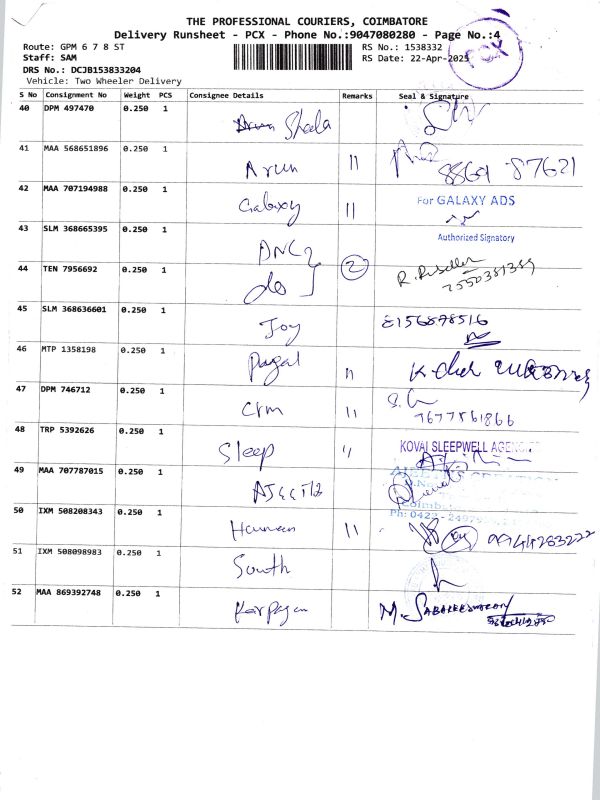 THE PROFESSIONAL COURIERS, COIMBATORE
Delivery Runsheet - PCX - Phone No.:9047080280 - Page No.:4
Route: GPM 6 7 8 ST RS No.: 1538332
Staff: SAM RS Date: 22-Apr-2025
DRS No.: DCJB153833204
Vehicle: Two Wheeler Delivery
PCX
S No Consignment No Weight PCS Consignee Details Remarks Seal & Signature
40 DPM 497470 0.250 1 Sheela
41 MAA 568651896 0.250 1 Arun 11 87621
42 MAA 707194988 0.250 1 Galaxy 11 For GALAXY ADS
Authorized Signatory
43 SLM 368665395 0.250 1
44 TEN 7956692 0.250 1 do 2
45 SLM 368636601 0.250 1 Joy
46 MTP 1358198 0.250 1
47 DPM 746712 0.250 1 crm 11
48 TRP 5392626 0.250 1 Sleep KOVAI SLEEPWELL
49 MAA 707787015 0.250 1
50 IXM 508208343 0.250 1 11 9944283222
51 IXM 508098983 0.250 1 South
52 MAA 869392748 0.250 1 M. SABAREESWARAN